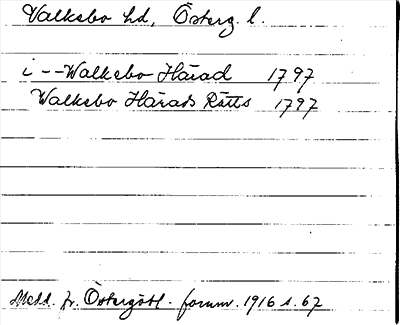 Valkebo hd, Österg. l.
i -- Walkebo Härad 1797
Walkebo Härads Rätts 1797
Medd. fr. Östergötl. fornm. 1916 s. 67